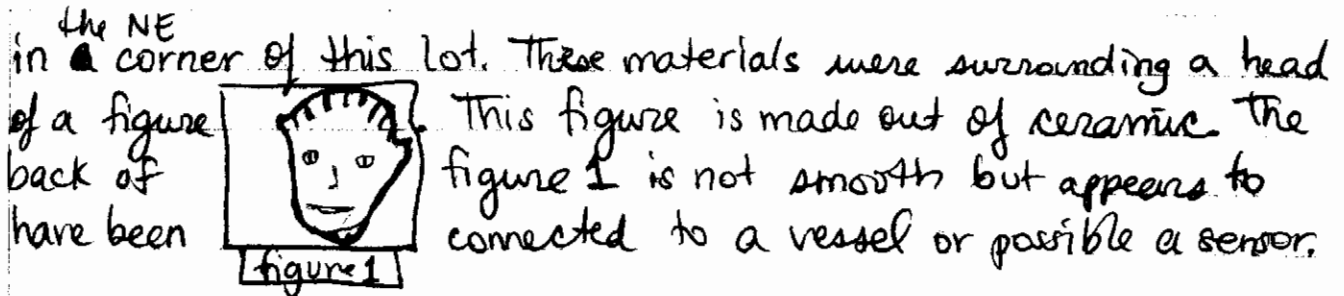 the NE
in a corner of this lot. These materials were surrounding a head
of a figure. This figure is made out of ceramic. The
back of figure 1 is not smooth but appears to
have been connected to a vessel or possible a sensor.
figure 1